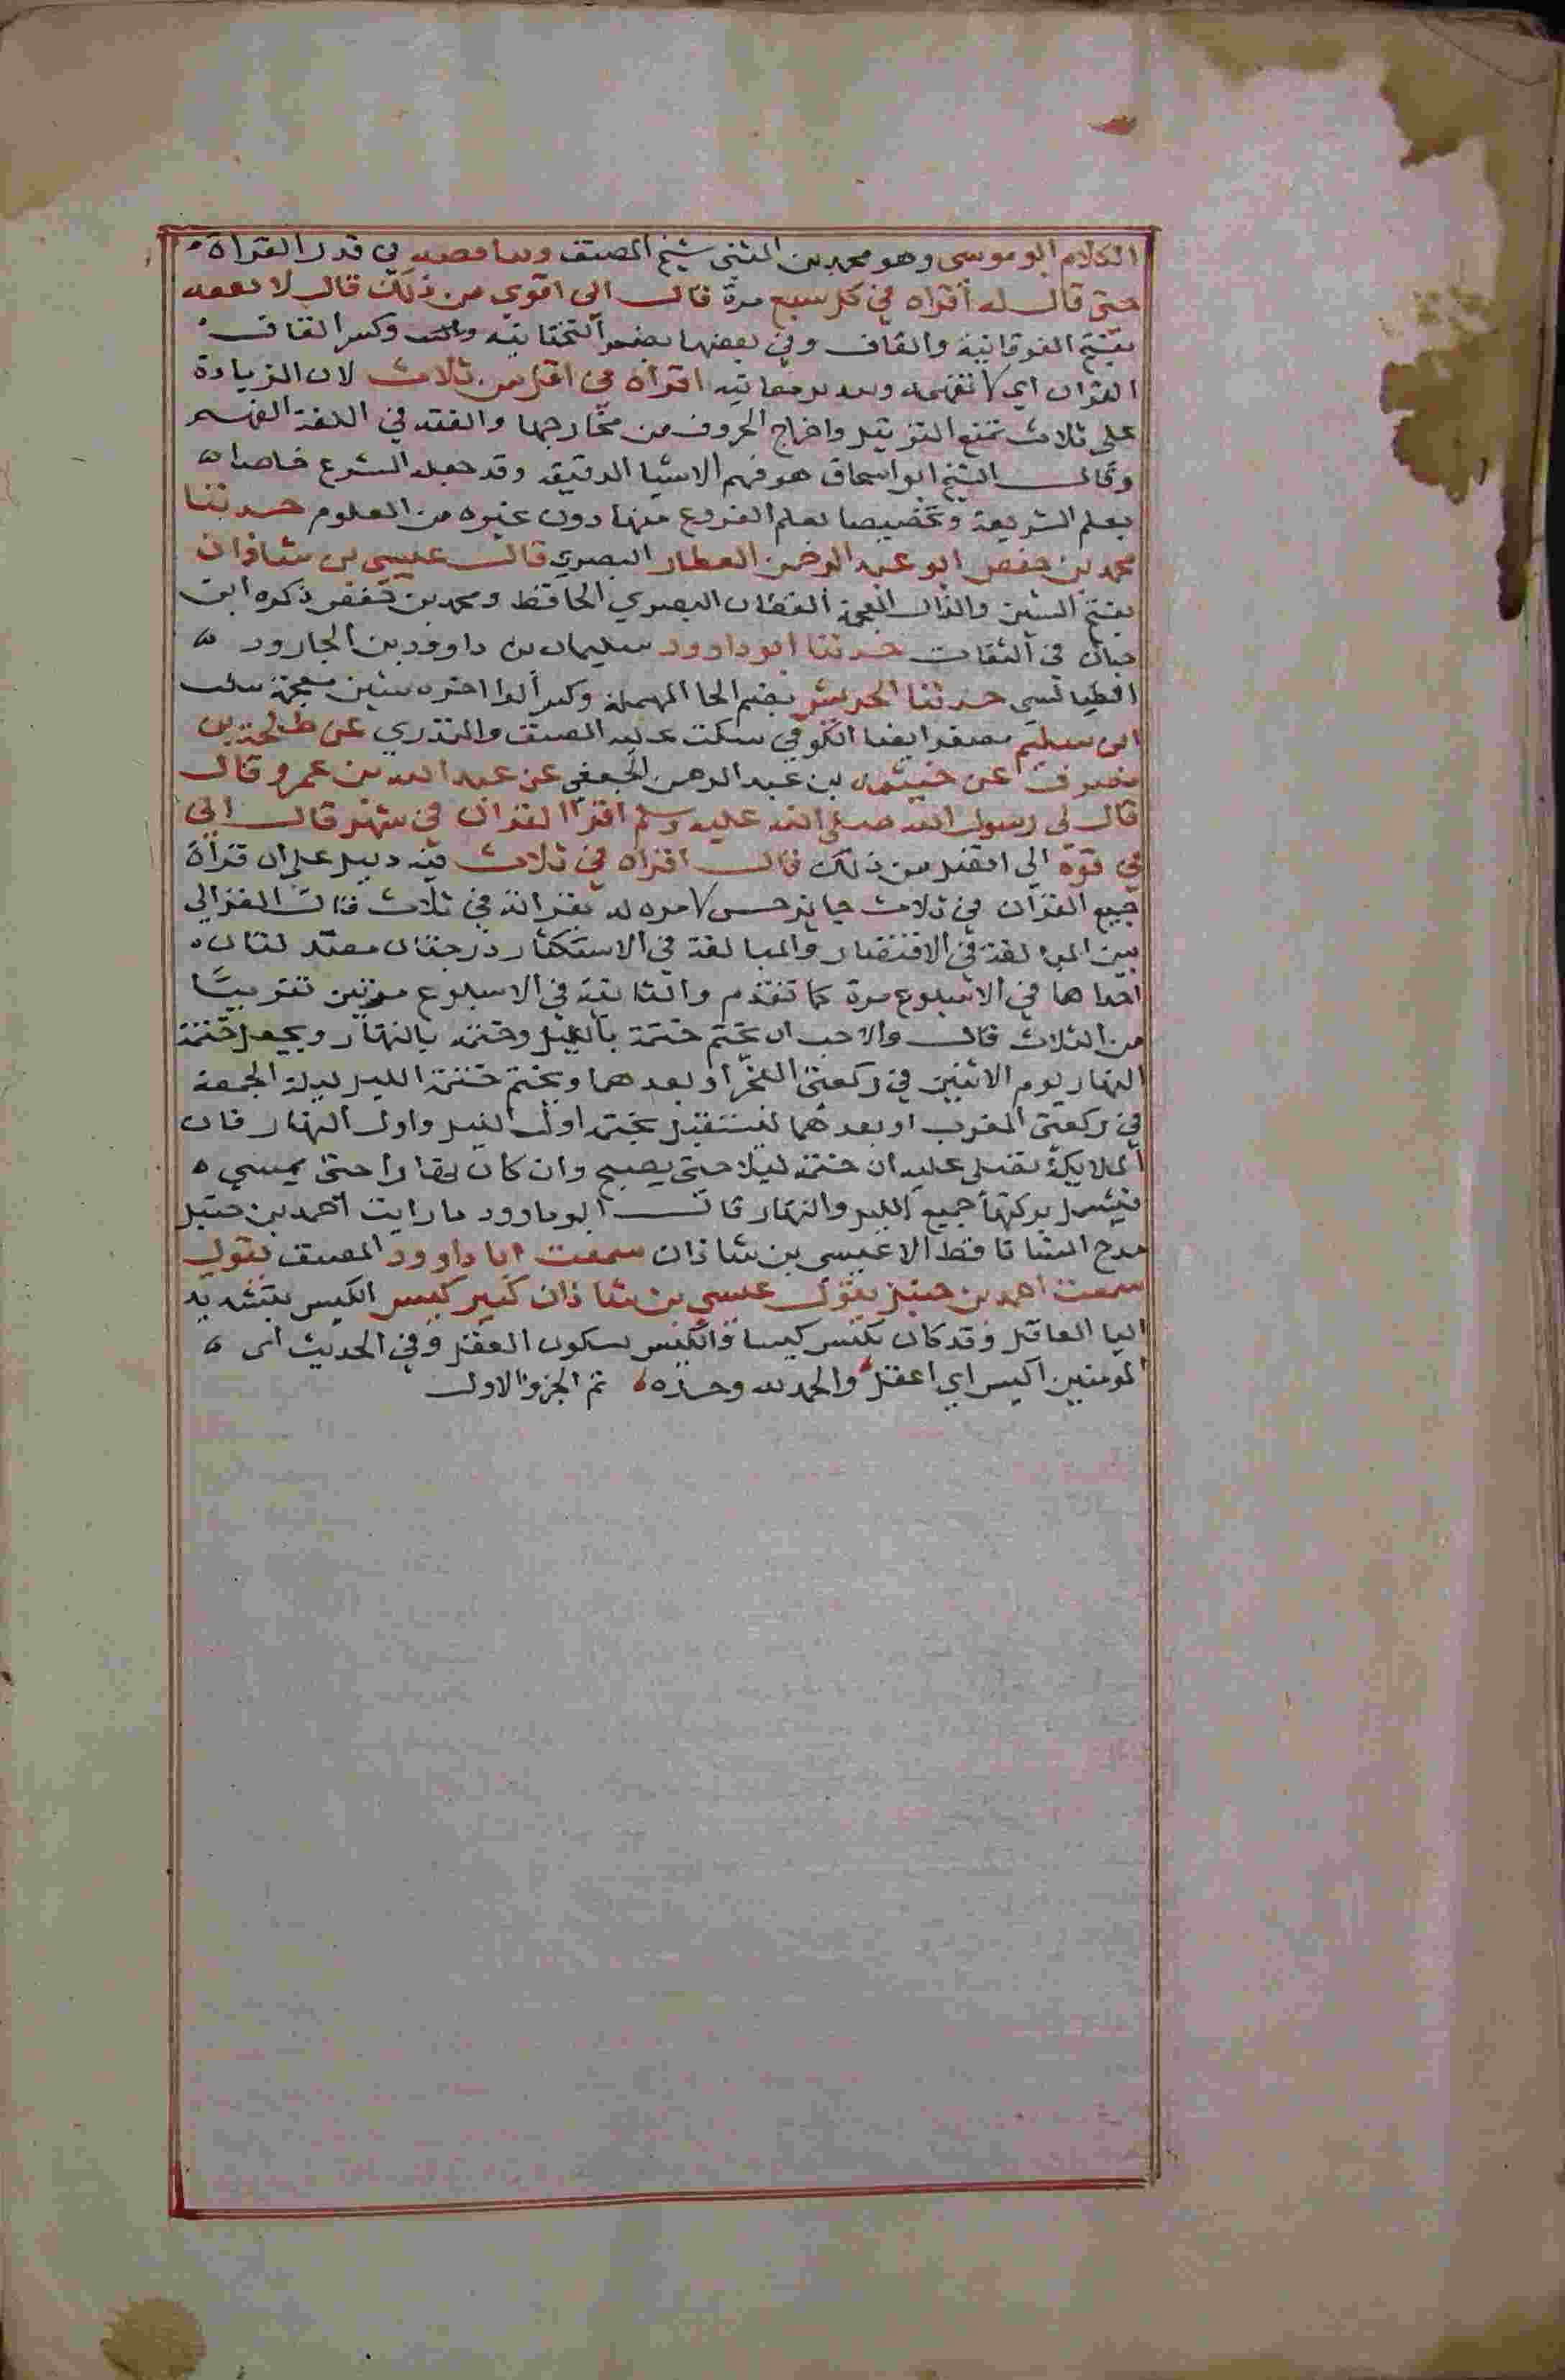 الكلام ابو موسى وهو محمد بن المثنى شيخ المصنف وناقصه في قدر القراة
حتى قال له اقراه في كل سبع مرة قال اني اقوي من ذلك قال لا يفقه
بفتح الفوقانية والقاف وفي بعضها بضم التحتانية وكسر القاف
القران اي لا تفهمه وتدبر معانيه اقراه في اقل من ثلاث لان الزيادة
على ثلاث تمنع الترتيل واخراج الحروف من مخارجها والفقه في اللغة الفهم
وقال الشيخ ابو اسحاق هو فهم الاشيا الدقيقه وقد جعله الشرع خاصا
بعلم الشريعة وتخصيصا بعلم الفروع منها دون غيره من العلوم حدثنا
محمد بن حفص ابو عبد الرحمن العطار البصري قال عيسى بن شاذان
بفتح الشين والذال المعجمة القطان البصري الحافظ ومحمد بن حفص ذكره ابن
حبان في الثقات حدثنا ابو داوود سليمان بن داوود بن الجارود
الطيالسي حدثنا الحريش بفتح الحا المهملة وكسر الرا اخره شين معجمة
ابن سليم مصغر ايضا الكوفي سكت عليه المصنف والمنذري عن طلحة بن
مصرف عن خيثمه بن عبد الرحمن الجعفي عن عبد الله بن عمرو قال
قال لي رسول الله صلى الله عليه وسلم اقرا القران في شهر قال اني
في قوة الى افضل من ذلك قال اقراه في ثلاث فيه دليل على ان قراة
جميع القران في ثلاث جايز حسن لامره له بقراته في ثلاث قال الغزالي
بين المبالغة في الاقتصار والمبالغة في الاستكثار درجتان معتدلتان
احداها في الاسبوع مرة كما تقدم والثانية في الاسبوع مرتين تقريبًا
من الثلاث قال والاحب ان يختم ختمة بالليل وختمة بالنهار ويجعل ختمة
النهار يوم الاثنين في ركعتي الفجر او بعدهما ويختم ختمة الليل ليلة الجمعة
في ركعتي المغرب او بعدهما ليستقبل بختمه اول الليل واول النهار فان
الملايكة تصلى عليه ان ختمه ليلا حتى يصبح وان كان نهارا حتى يمسي
فيشمل بركتها جميع الليل والنهار قال ابو داوود ما رايت احمد بن حنبل
مدح انسانا قط الا عيسى بن شاذان سمعت ابا داوود المصنف يقول
سمعت احمد بن حنبل يقول عيسى بن شاذان كبير كيس الكيس بتشديد
اليا العاقل وقد كان يكيس كيسا والكيس بسكون العقل وفي الحديث اي
المومنين اكيس اي اعقل والحمد لله وحده تم الجزو الاول